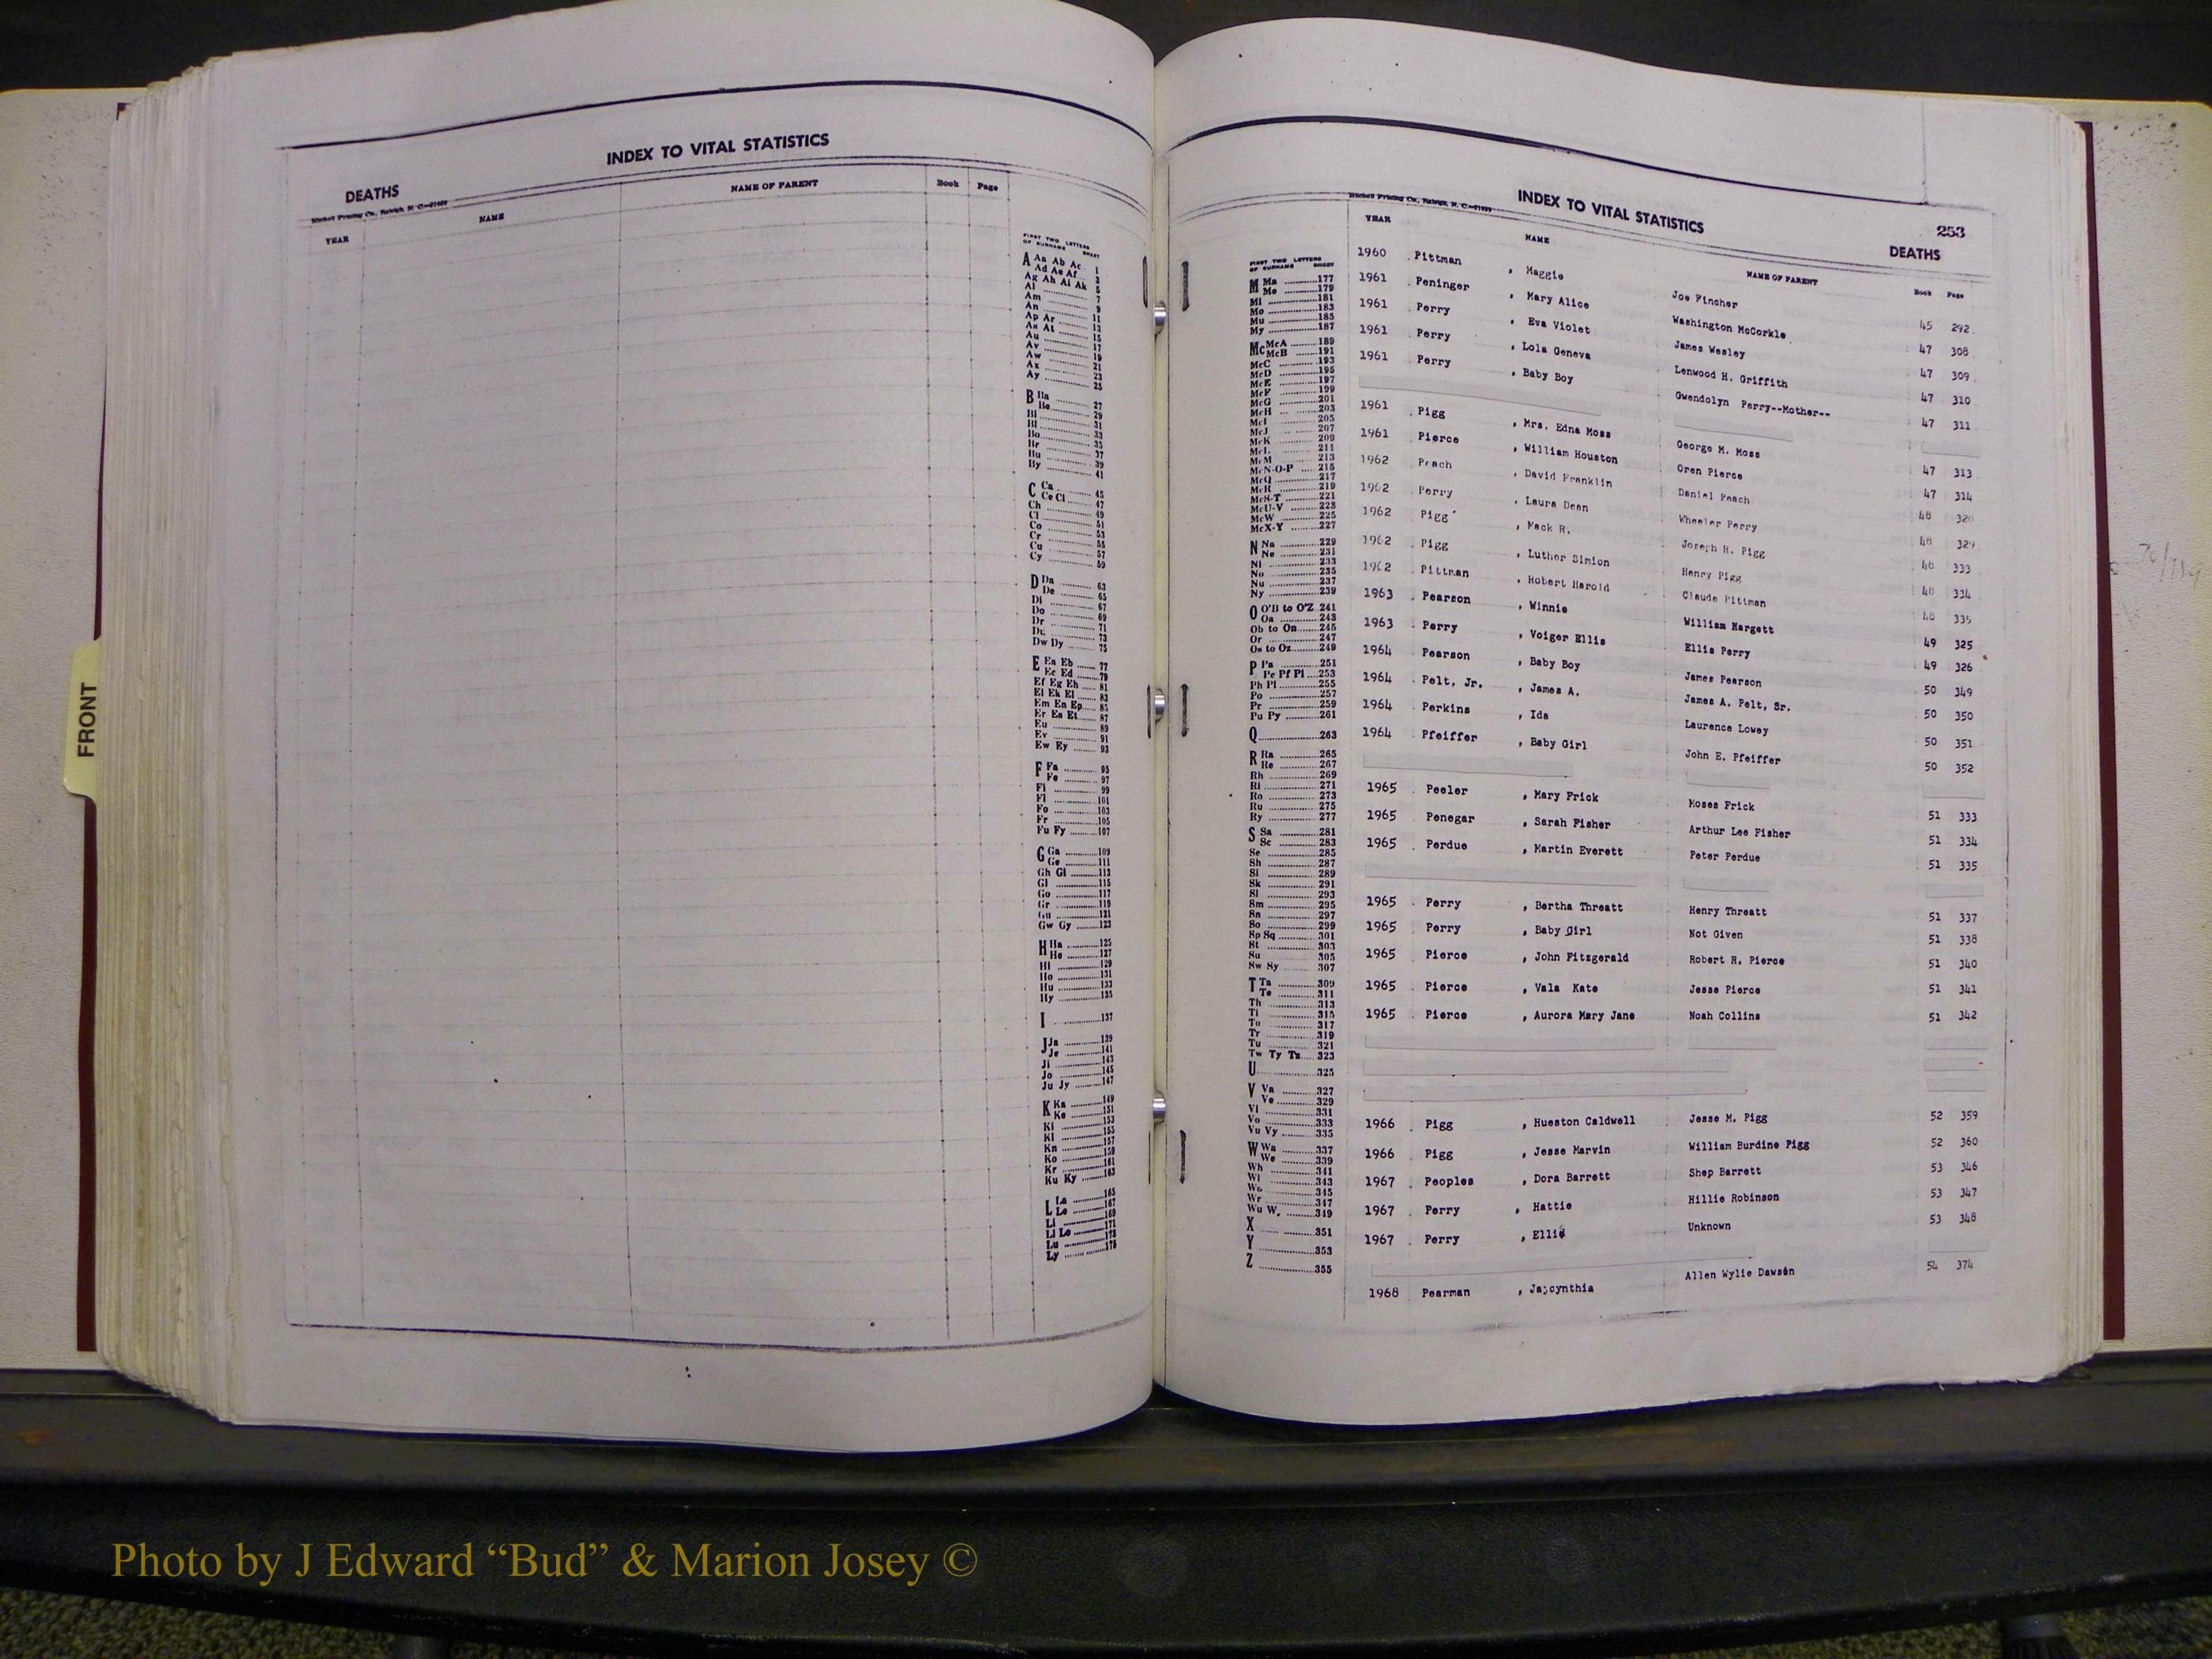 INDEX TO VITAL STATISTICS
DEATHS
Mitchell Printing Co., Raleigh, N. C.
YEAR NAME NAME OF PARENT Book Page
FIRST TWO LETTERS OF SURNAME SHEET
A Aa Ab Ac 1
Ad Ae Af 3
Ag Ah Ai Ak 5
Al 7
Am 9
An 11
Ap Ar 13
As At 15
Au 17
Av 19
Aw 21
Ax 23
Ay 25
B Ba 27
Be 29
Bi 31
Bl 33
Bo 35
Br 37
Bu 39
By 41
C Ca 45
Ce Ci 47
Ch 49
Cl 51
Co 53
Cr 55
Cu 57
Cy 59
D Da 63
De 65
Di 67
Do 69
Dr 71
Du 73
Dw Dy 75
E Ea Eb 77
Ec Ed 79
Ef Eg Eh 81
Ei Ek El 83
Em En Ep 85
Er Es Et 87
Eu 89
Ev 91
Ew Ey 93
F Fa 95
Fe 97
Fi 99
Fl 101
Fo 103
Fr 105
Fu Fy 107
G Ga 109
Ge 111
Gh Gi 113
Gl 115
Go 117
Gr 119
Gu 121
Gw Gy 123
H Ha 125
He 127
Hi 129
Ho 131
Hu 133
Hy 135
I 137
J Ja 139
Je 141
Ji 143
Jo 145
Ju Jy 147
K Ka 149
Ke 151
Ki 153
Kl 155
Kn 157
Ko 159
Kr 161
Ku Ky 163
L La 165
Le 167
Li 169
Ll Lo 171
Lu 173
Ly 175
FRONT
253
INDEX TO VITAL STATISTICS
DEATHS
Mitchell Printing Co., Raleigh, N. C.
YEAR NAME NAME OF PARENT Book Page
FIRST TWO LETTERS OF SURNAME SHEET
M Ma 177
Me 179
Mi 181
Mo 183
Mu 185
My 187
Mc McA 189
McB 191
McC 193
McD 195
McE 197
McF 199
McG 201
McH 203
McI 205
McJ 207
McK 209
McL 211
McM 213
McN-O-P 215
McQ 217
McR 219
McS-T 221
McU-V 223
McW 225
McX-Y 227
N Na 229
Ne 231
Ni 233
No 235
Nu 237
Ny 239
O O'B to O'Z 241
Oa 243
Ob to On 245
Or 247
Os to Oz 249
P Pa 251
Pe Pf Pi 253
Ph Pl 255
Po 257
Pr 259
Pu Py 261
Q 263
R Ra 265
Re 267
Rh 269
Ri 271
Ro 273
Ru 275
Ry 277
S Sa 281
Sc 283
Se 285
Sh 287
Si 289
Sk 291
Sl 293
Sm 295
Sn 297
So 299
Sp Sq 301
St 303
Su 305
Sw Sy 307
T Ta 309
Te 311
Th 313
Ti 315
To 317
Tr 319
Tu 321
Tw Ty Ts 323
U 325
V Va 327
Ve 329
Vi 331
Vo 333
Vu Vy 335
W Wa 337
We 339
Wh 341
Wi 343
Wo 345
Wr 347
Wu W. 349
X 351
Y 353
Z 355
1960 Pittman , Maggie Joe Fincher 45 292
1961 Peninger , Mary Alice Washington McCorkle 47 308
1961 Perry , Eva Violet James Wesley 47 309
1961 Perry , Lola Geneva Lenwood H. Griffith 47 310
1961 Perry , Baby Boy Gwendolyn Perry--Mother-- 47 311
1961 Pigg , Mrs. Edna Moss George M. Moss 47 313
1961 Pierce , William Houston Oren Pierce 47 314
1962 Peach , David Franklin Daniel Peach 48 328
1962 Perry , Laura Dean Wheeler Perry 48 329
1962 Pigg , Mack R. Joseph R. Pigg 48 333
1962 Pigg , Luther Simion Henry Pigg 48 334
1962 Pittman , Robert Harold Claude Pittman 48 335
1963 Pearson , Winnie William Hargett 49 325
1963 Perry , Voiger Ellis Ellis Perry 49 326
1964 Pearson , Baby Boy James Pearson 50 349
1964 Pelt, Jr. , James A. James A. Pelt, Sr. 50 350
1964 Perkins , Ida Laurence Lowey 50 351
1964 Pfeiffer , Baby Girl John E. Pfeiffer 50 352
1965 Peeler , Mary Frick Moses Frick 51 333
1965 Penegar , Sarah Fisher Arthur Lee Fisher 51 334
1965 Perdue , Martin Everett Peter Perdue 51 335
1965 Perry , Bertha Threatt Henry Threatt 51 337
1965 Perry , Baby Girl Not Given 51 338
1965 Pierce , John Fitzgerald Robert R. Pierce 51 340
1965 Pierce , Vala Kate Jesse Pierce 51 341
1965 Pierce , Aurora Mary Jane Noah Collins 51 342
1966 Pigg , Hueston Caldwell Jesse M. Pigg 52 359
1966 Pigg , Jesse Marvin William Burdine Pigg 52 360
1967 Peoples , Dora Barrett Shep Barrett 53 346
1967 Perry , Hattie Hillie Robinson 53 347
1967 Perry , Ellis Unknown 53 348
1968 Pearman , Jacynthia Allen Wylie Dawsen 54 374
Photo by J Edward “Bud” & Marion Josey ©